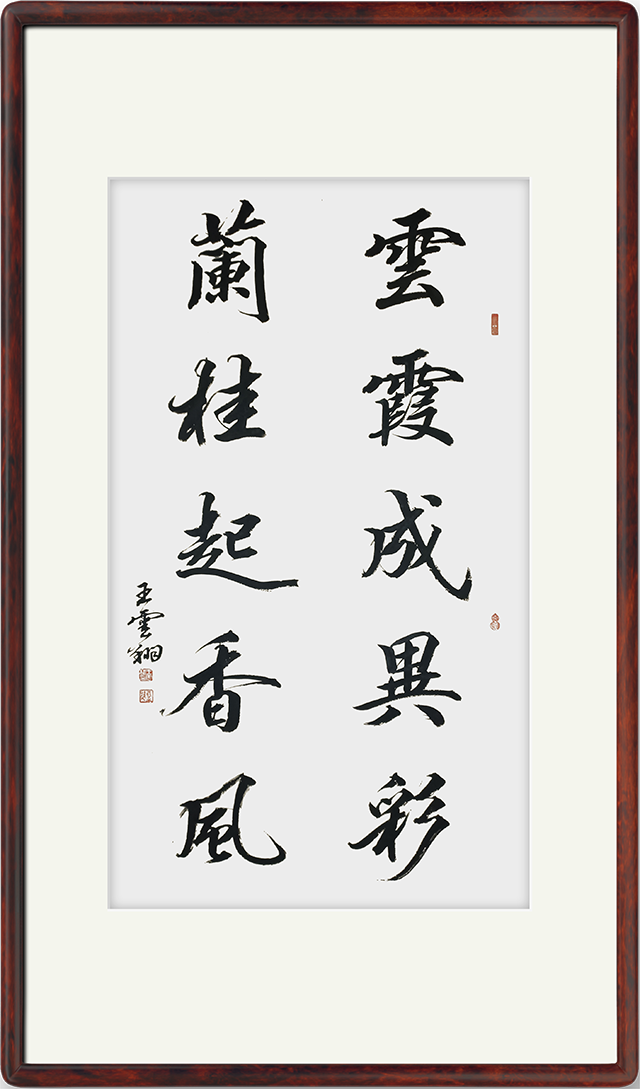 雲霞成異彩
蘭桂起香風
王雲翔